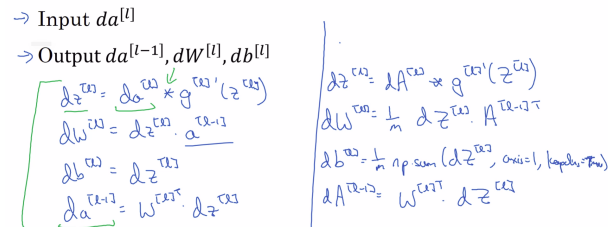 → Input da^[l]
→ Output da^[l-1], dW^[l], db^[l]
dz^[l] = da^[l] * g^[l]'(z^[l])
dW^[l] = dz^[l] · a^[l-1]
db^[l] = dz^[l]
da^[l-1] = W^[l]T · dz^[l]
dZ^[l] = dA^[l] * g^[l]'(Z^[l])
dW^[l] = 1/m dZ^[l] · A^[l-1]T
db^[l] = 1/m np.sum(dZ^[l], axis=1, keepdims=True)
dA^[l-1] = W^[l]T · dZ^[l]